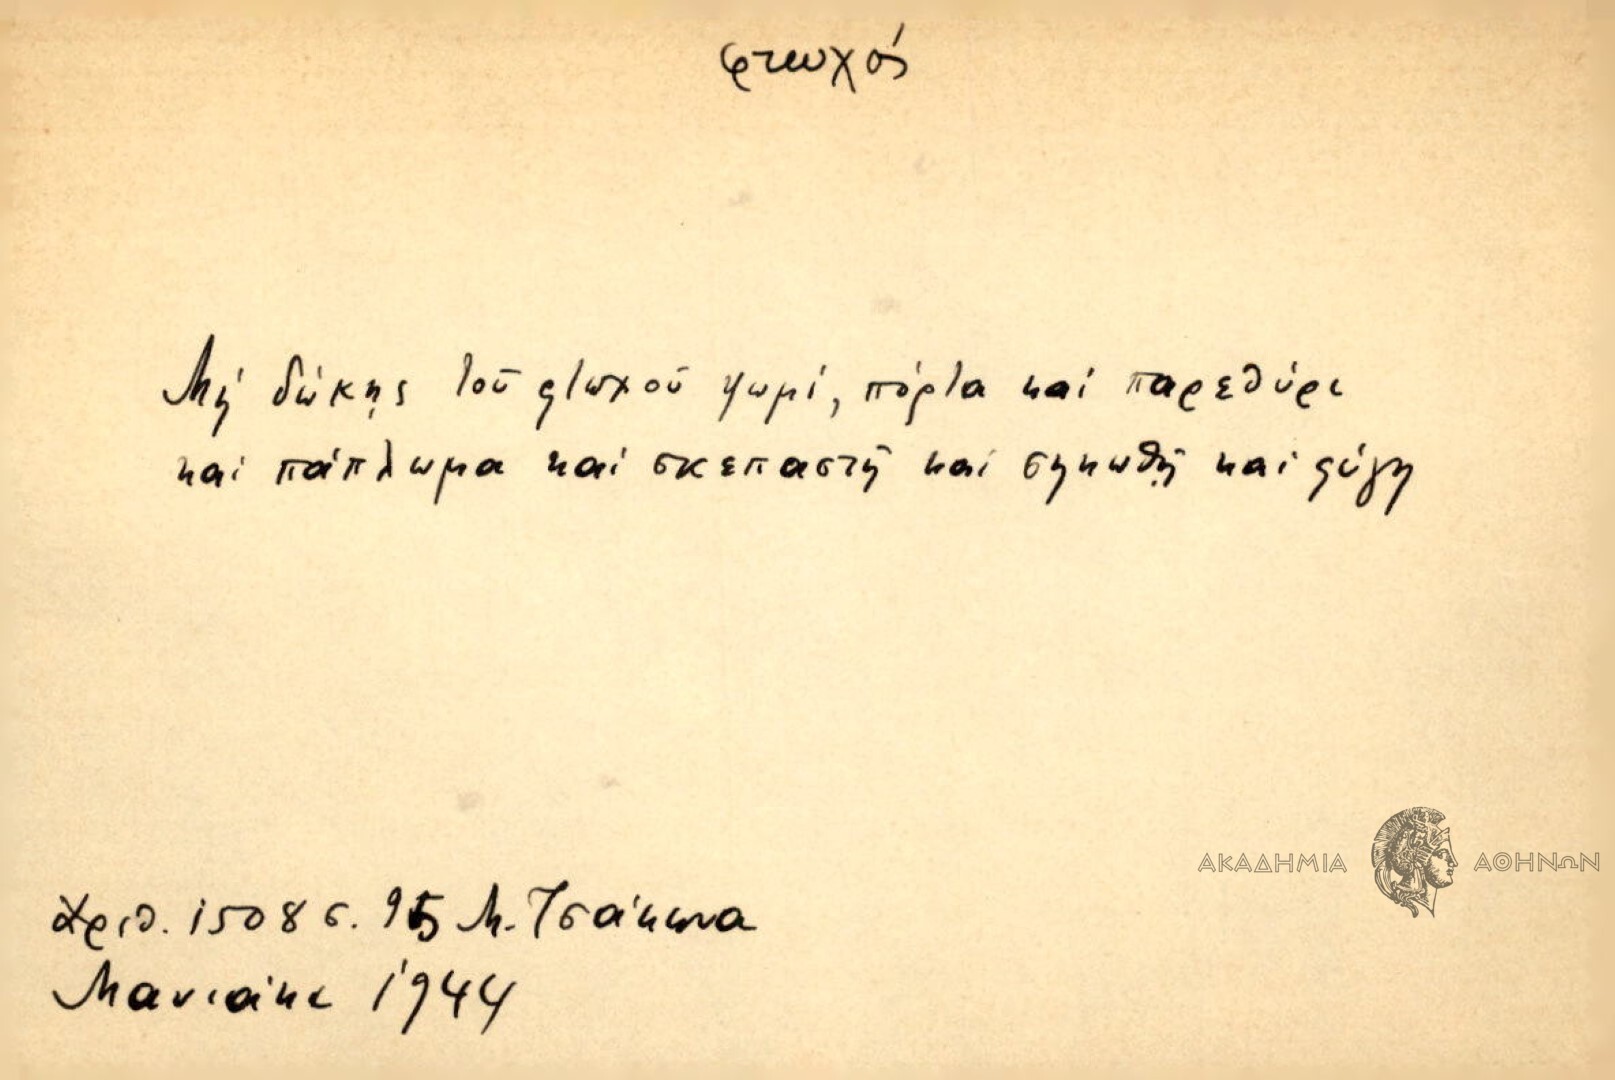 φτωχός
Μή δώκῃς τοῦ φτωχοῦ ψωμί, πόρτα καί παρεθύρι
καί πάπλωμα καί σκεπαστῆ καί σηκωθῇ καί φύγη
Ἀριθ. 1508 σ. 95 Μ. Τσάκωνα
Μανιάκι 1944
ΑΚΑΔΗΜΙΑ ΑΘΗΝΩΝ